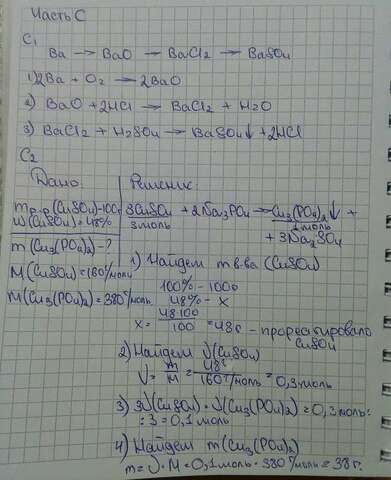 Часть С
С1
Ba → BaO → BaCl2 → BaSO4
1) 2Ba + O2 → 2BaO
2) BaO + 2HCl → BaCl2 + H2O
3) BaCl2 + H2SO4 → BaSO4↓ + 2HCl
С2
Дано:
m р-р (CuSO4) = 100г
W(CuSO4) = 48%
m (Cu3(PO4)2) - ?
M(CuSO4) = 160 г/моль
M(Cu3(PO4)2) = 380 г/моль
Решение:
3CuSO4 + 2Na3PO4 → Cu3(PO4)2↓ +
3 моль 1 моль
+ 3Na2SO4
1) Найдем m в-ва (CuSO4)
100% - 100г
48% - x
x = 48·100/100 = 48г - прореагировало
CuSO4
2) Найдем ν(CuSO4)
ν = m/M = 48г/160 г/моль = 0,3 моль
3) 3ν(CuSO4) = ν(Cu3(PO4)2) = 0,3 моль:
: 3 = 0,1 моль
4) Найдем m(Cu3(PO4)2)
m = ν · M = 0,1 моль · 380 г/моль = 38г.